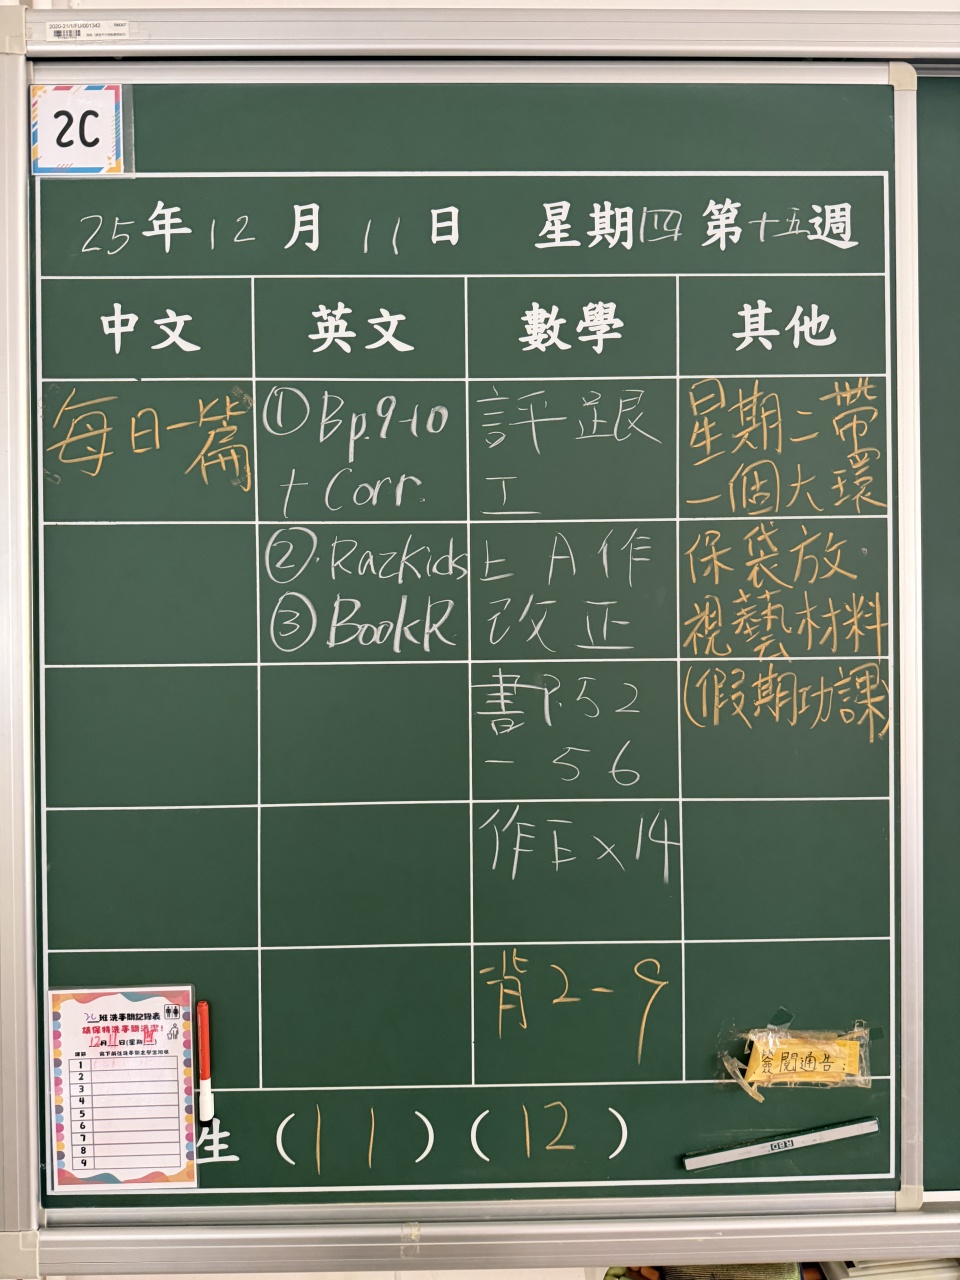 2020-21/1/FU/001342
2C
25年12月11日 星期四第十五週
中文 英文 數學 其他
每日一篇
①Bp.9-10
+ Corr.
②.RazKids
③BookR
評 跟
工
上 A 作
改 正
書P.52
- 56
作Ex14
背2-9
星期二帶
一個大環
保袋放
視藝材料
(假期功課)
2C班洗手間記錄表
請保持洗手間清潔!
12月11日(星期四)
1
2
3
4
5
6
7
8
9
簽閱通告:
生 (11) (12)